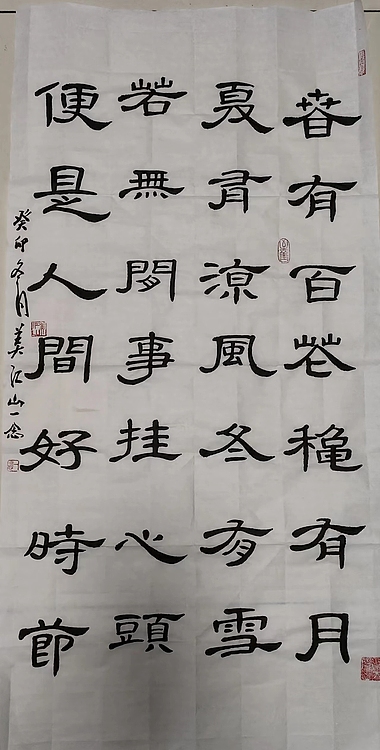 春有百花穐有月
夏有涼風冬有雪
若無閑事挂心頭
便是人間好時節
癸卯冬月美江山一念